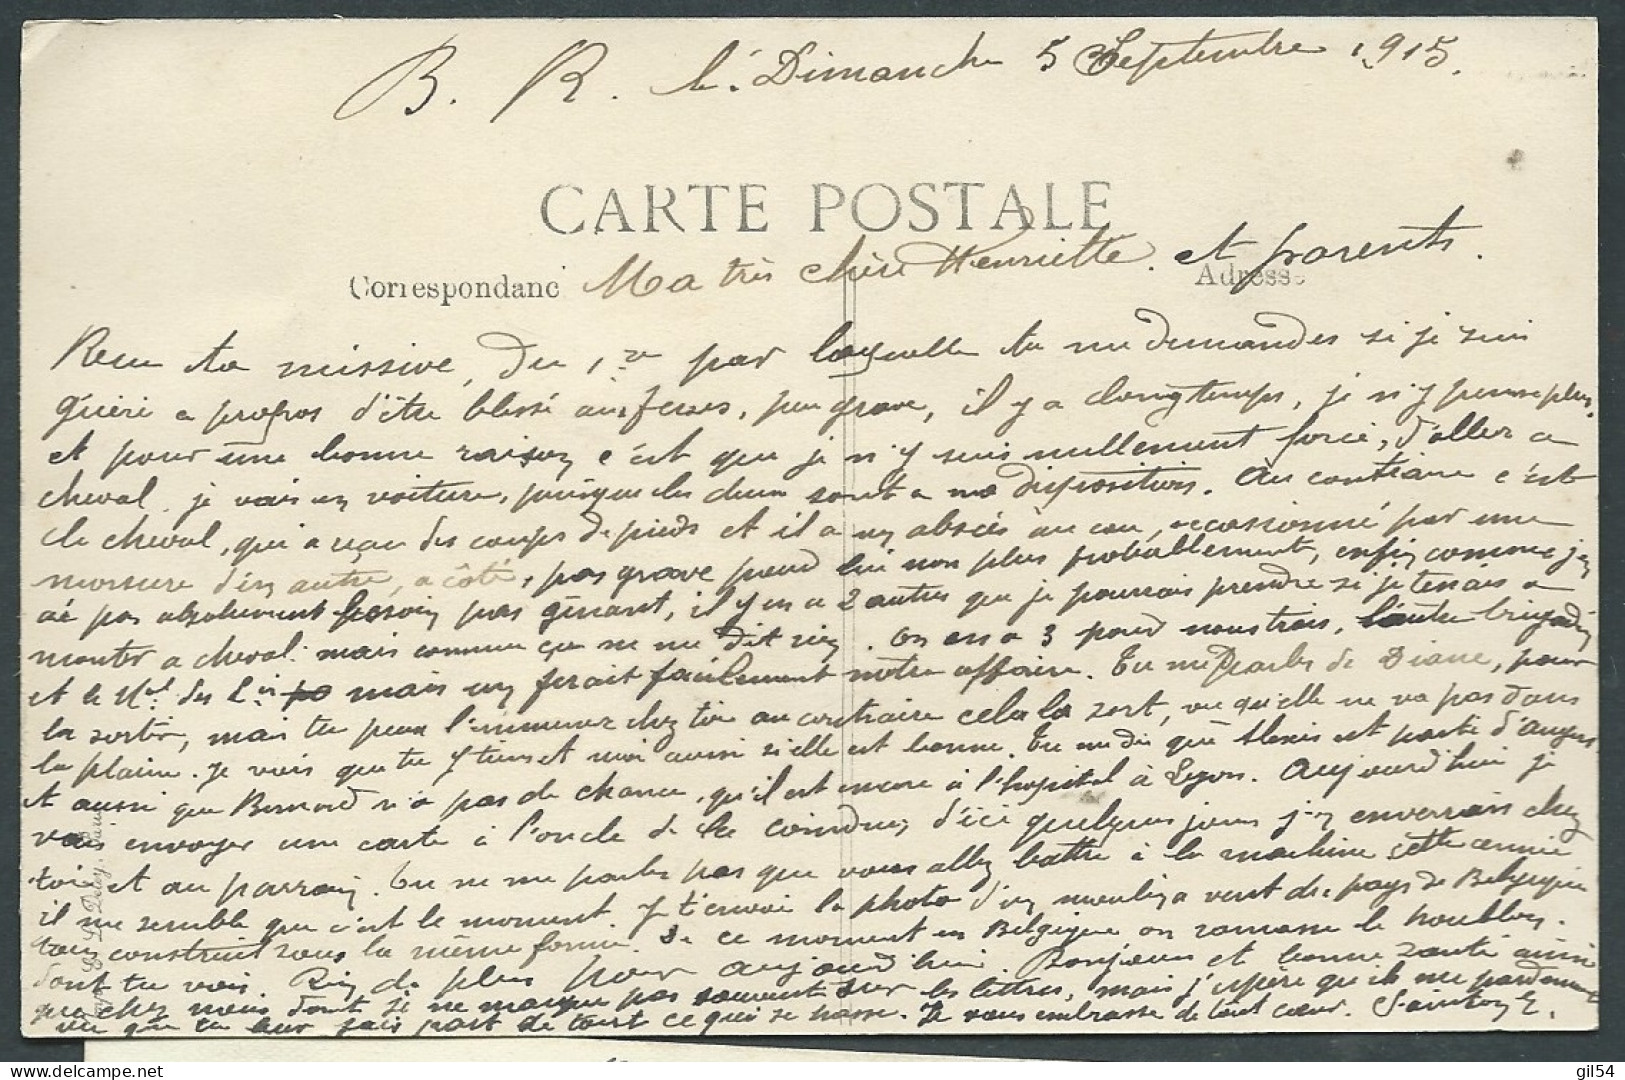 B. R. le Dimanche 5 Septembre 1915.
CARTE POSTALE
Correspondanc
Adresse
Ma très chère Henriette et parents.
Recu ta missive, du 1er par laquelle tu me demandes si je suis
guéri a propos d'être blessé aux fesses, peu grave, il y a longtemps, je n'y pense plus,
et pour une bonne raison c'est que je n'y suis nullement forcé, d'aller a
cheval, je vais en voiture, puisque les deux sont a ma disposition. Au contraire c'est
le cheval, qui a reçu des coups de pieds et il a un abscès au cou, occasionné par une
morsure d'un autre, a côté, pas grave pour lui non plus probablement, enfin comme j'en
ai pas absolument besoin pas gênant, il y en a 2 autres que je pourrais prendre si je tenais a
monter a cheval. mais comme ça ne me dit rien. On en a 3 pour nous trois, l'autre brigadier
et le Mal des Lis mais un ferait facilement notre affaire. Tu me parles de Diane, pour
la sortir, mais tu peux l'emmener chez toi au contraire cela la sort, vu qu'elle ne va pas dans
la plaine. Je vois que tu y tiens et moi aussi si elle est bonne. Tu me dis que Alexis est parti d'Angers
et aussi que Bernard n'a pas de chance, qu'il est encore à l'hopital à Lyon. Aujourd'hui je
vais envoyer une carte à l'oncle de la d'ici quelques jours j'en enverrais chez
toi et au parrain. Tu ne me parles pas que vous allez battre à la machine cette année
il me semble que c'est le moment. Je t'envoi la photo d'un moulin a vent du pays de Belgique
tous construit sous la même forme. En ce moment en Belgique on ramasse le houblon.
dont tu vois. Rien de plus pour aujourd'hui. Bonjour et bonne santé ainsi
que chez nous dont je ne marque pas souvent sur les lettres, mais j'espère qu'ils me pardonnent
vu que tu leur fais part de tout ce qui se passe. Je vous embrasse de tout cœur.
gil54